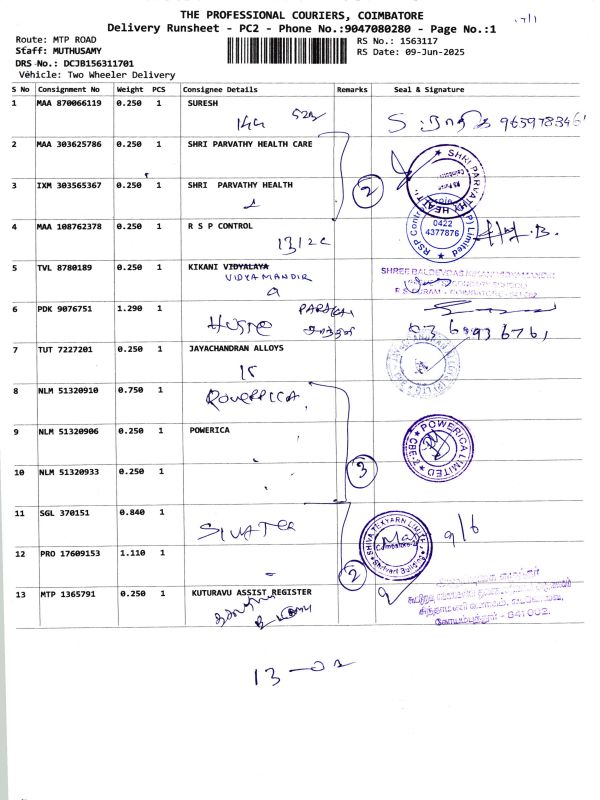 THE PROFESSIONAL COURIERS, COIMBATORE
Delivery Runsheet - PC2 - Phone No.:9047080280 - Page No.:1
Route: MTP ROAD
RS No.: 1563117
Staff: MUTHUSAMY
RS Date: 09-Jun-2025
DRS No.: DCJB156311701
Vehicle: Two Wheeler Delivery
S No Consignment No Weight PCS Consignee Details Remarks Seal & Signature
1 MAA 870066119 0.250 1 SURESH
2 MAA 303625786 0.250 1 SHRI PARVATHY HEALTH CARE
3 IXM 303565367 0.250 1 SHRI PARVATHY HEALTH
2
SHRI PARVATHY HEALTH
4 MAA 108762378 0.250 1 R S P CONTROL
1312c
RSP Contro Limited
0422
4377876
5 TVL 8780189 0.250 1 KIKANI VIDYALAYA
VIDYA MANDIR
6 PDK 9076751 1.290 1
7 TUT 7227201 0.250 1 JAYACHANDRAN ALLOYS
8 NLM 51320910 0.750 1
9 NLM 51320906 0.250 1 POWERICA
POWERICA LIMITED
CBE-2
10 NLM 51320933 0.250 1
3
11 SGL 370151 0.840 1
SHIVA TEXYARN LIMITED
Coimbatore-2
Shivari Building
9/6
12 PRO 17609153 1.110 1
2
13 MTP 1365791 0.250 1 KUTURAVU ASSIST REGISTER
கோயம்புத்தூர் - 641 002.
13 - 02